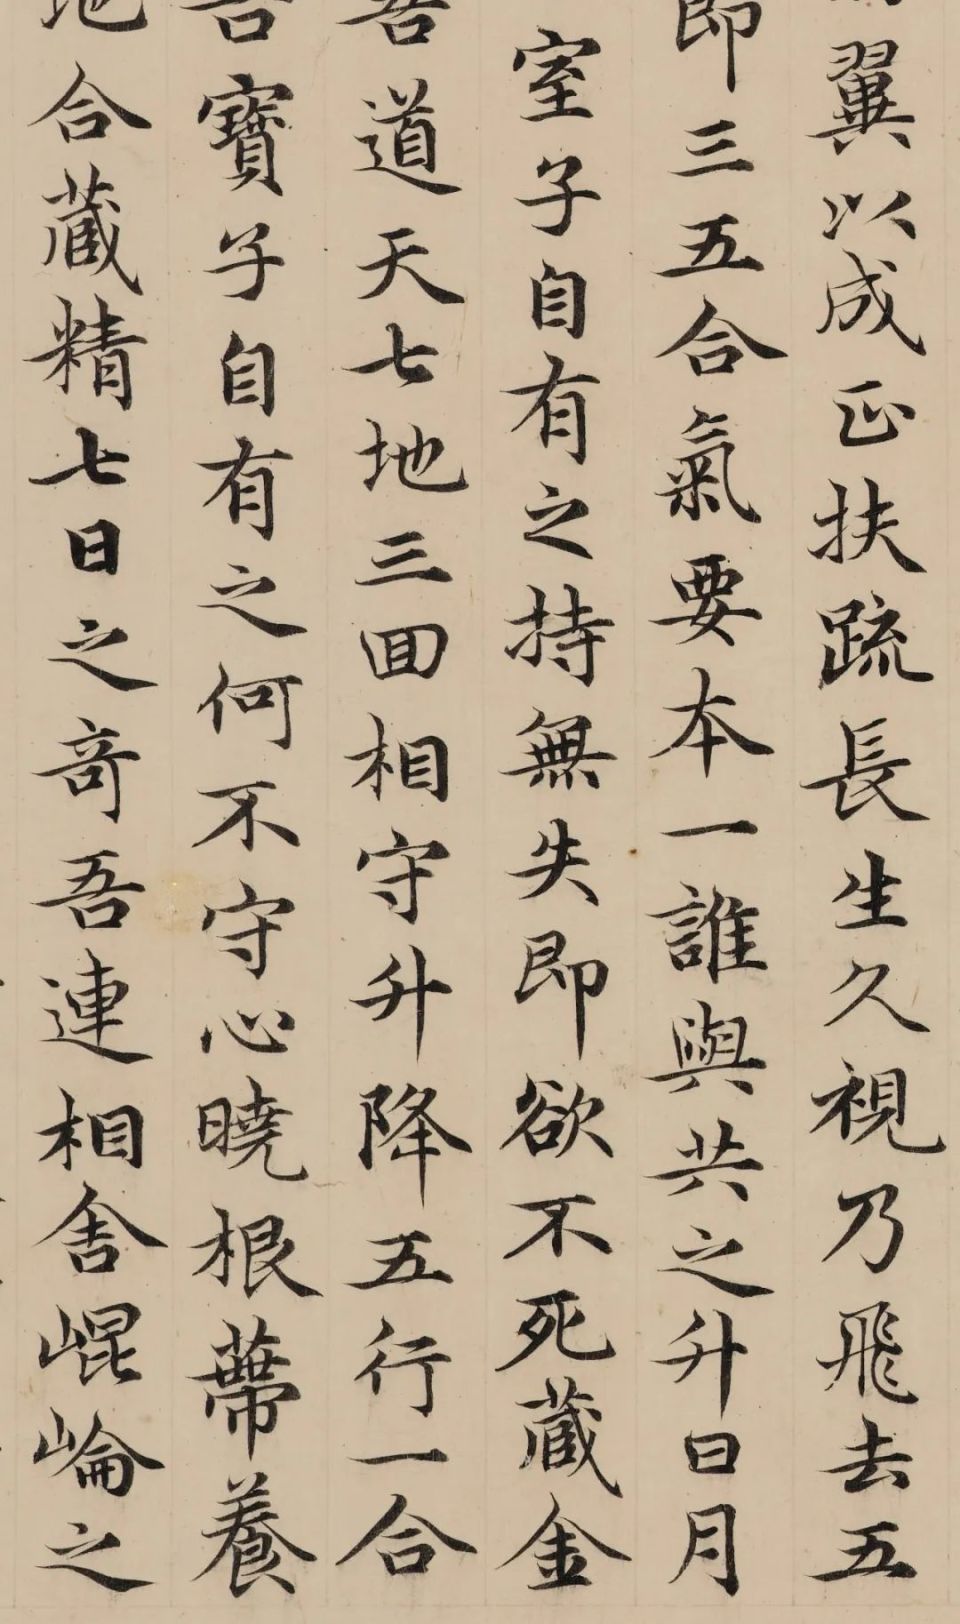 翼以成正扶疏長生久視乃飛去五
即三五合氣要本一誰與共之升日月
室子自有之持無失即欲不死藏金
吾道天七地三回相守升降五行一合
吾寶子自有之何不守心曉根蔕養
地合藏精七日之奇吾連相舍崐崘之